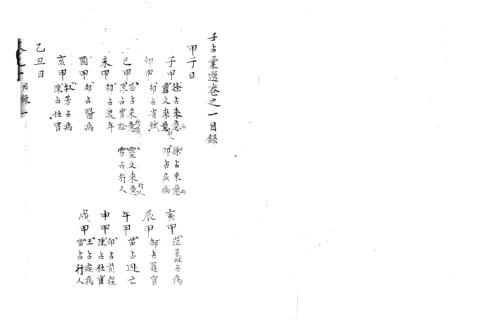 壬占彙選卷之一目錄
甲子日
子甲 徐占來意 徐占來意
靈文來意 邵占疾病
寅甲 占病
卯甲 邵占
辰甲 邵占
巳甲 苗占來意 靈文來意
陳占官訟 雪占行人
午甲 苗占逃亡
未甲 邵占流年
申甲 邵占前程
陳占仕宦
酉甲 邵占醫病
戌甲 王占疾病
雪占行人
亥甲 占病
陳占仕宦
乙丑日